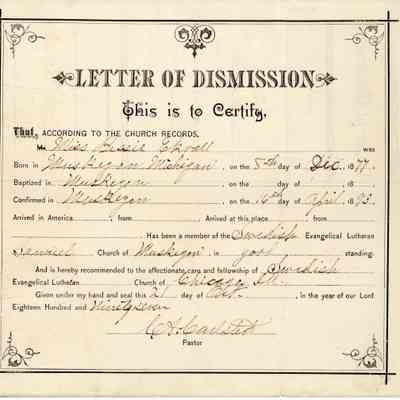 LETTER OF DISMISSION
This is to Certify,
That, ACCORDING TO THE CHURCH RECORDS,
M Miss Bessie Ekvall was
Born in Muskegon Michigan, on the 8th day of Dec. 1877.
Baptized in Muskegon, on the day of, 18
Confirmed in Muskegon, on the 16th day of April, 1893.
Arrived in America from Arrived at this place from
Has been a member of the Swedish Evangelical Lutheran
Samuel Church of Muskegon in good standing:
And is hereby recommended to the affectionate care and fellowship of Swedish
Evangelical Lutheran Church of Chicago, Ill.
Given under my hand and seal this 21 day of Oct., in the year of our Lord
Eighteen Hundred and Ninetyseven
Pastor